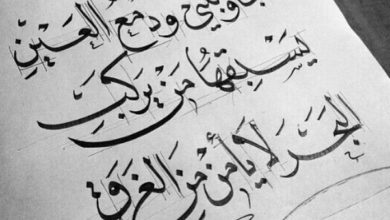 جاوبتني ودمع العينِ
يَسْبِقهُا مَن يركبِ
البَحرَ لَا يأمن مِنَ الغَرَقِ